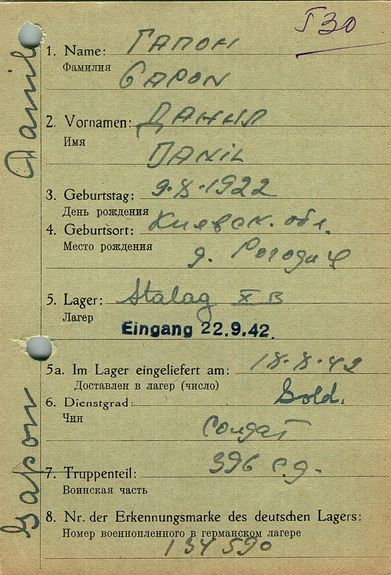 530
1. Name: Гапон
Фамилия
Gapon
2. Vornamen: Данил
Имя
Danil
3. Geburtstag: 9.X.1922
День рождения
4. Geburtsort: Киевск. обл.
Место рождения
д. Рогодич
5. Lager: Stalag X B
Лагер
Eingang 22.9.42.
5a. Im Lager eingeliefert am: 18.X.42
Доставлен в лагер (число)
6. Dienstgrad: Sold.
Чин
Солдат
7. Truppenteil: 396 с.д.
Воинская часть
8. Nr. der Erkennungsmarke des deutschen Lagers:
Номер военнопленного в германском лагере
134590
Gapon
Danil